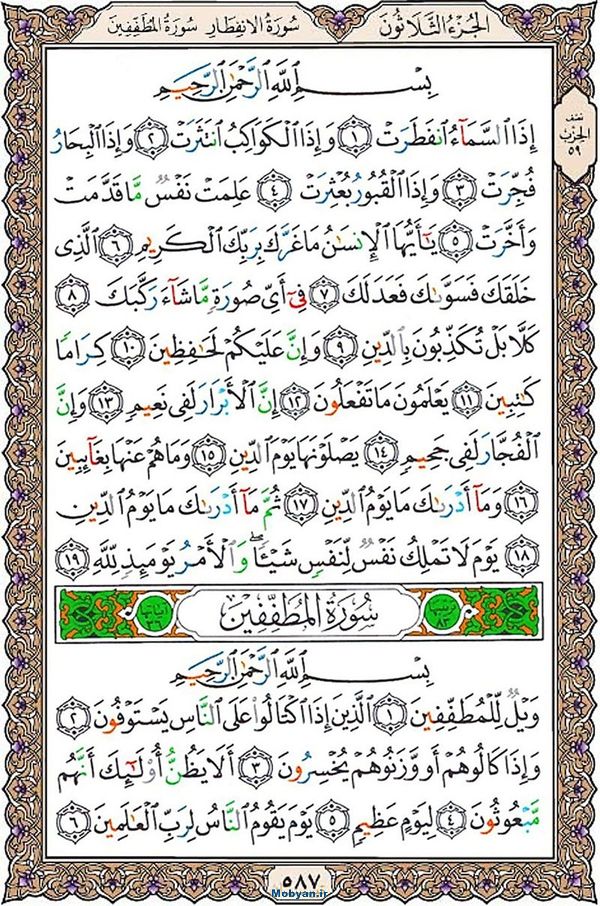 الجُزءُ الثَّلَاثُونَ
سُورَةُ الانفِطَارِ سُورَةُ المُطَفِّفِينَ
نصف
الحزب
٥٩
بِسْمِ ٱللَّهِ ٱلرَّحْمَٰنِ ٱلرَّحِيمِ
إِذَا ٱلسَّمَآءُ ٱنفَطَرَتْ ١ وَإِذَا ٱلْكَوَاكِبُ ٱنتَثَرَتْ ٢ وَإِذَا ٱلْبِحَارُ
فُجِّرَتْ ٣ وَإِذَا ٱلْقُبُورُ بُعْثِرَتْ ٤ عَلِمَتْ نَفْسٌ مَّا قَدَّمَتْ
وَأَخَّرَتْ ٥ يَٰٓأَيُّهَا ٱلْإِنسَٰنُ مَا غَرَّكَ بِرَبِّكَ ٱلْكَرِيمِ ٦ ٱلَّذِى
خَلَقَكَ فَسَوَّىٰكَ فَعَدَلَكَ ٧ فِىٓ أَىِّ صُورَةٍ مَّا شَآءَ رَكَّبَكَ ٨
كَلَّا بَلْ تُكَذِّبُونَ بِٱلدِّينِ ٩ وَإِنَّ عَلَيْكُمْ لَحَٰفِظِينَ ١٠ كِرَامًا
كَٰتِبِينَ ١١ يَعْلَمُونَ مَا تَفْعَلُونَ ١٢ إِنَّ ٱلْأَبْرَارَ لَفِى نَعِيمٍ ١٣ وَإِنَّ
ٱلْفُجَّارَ لَفِى جَحِيمٍ ١٤ يَصْلَوْنَهَا يَوْمَ ٱلدِّينِ ١٥ وَمَا هُمْ عَنْهَا بِغَآئِبِينَ
١٦ وَمَآ أَدْرَىٰكَ مَا يَوْمُ ٱلدِّينِ ١٧ ثُمَّ مَآ أَدْرَىٰكَ مَا يَوْمُ ٱلدِّينِ
١٨ يَوْمَ لَا تَمْلِكُ نَفْسٌ لِّنَفْسٍ شَيْـًٔا ۖ وَٱلْأَمْرُ يَوْمَئِذٍ لِّلَّهِ ١٩
ترتيبها ٨٣ سُورَةُ المُطَفِّفِينَ آياتها ٣٦
بِسْمِ ٱللَّهِ ٱلرَّحْمَٰنِ ٱلرَّحِيمِ
وَيْلٌ لِّلْمُطَفِّفِينَ ١ ٱلَّذِينَ إِذَا ٱكْتَالُوا۟ عَلَى ٱلنَّاسِ يَسْتَوْفُونَ ٢
وَإِذَا كَالُوهُمْ أَو وَّزَنُوهُمْ يُخْسِرُونَ ٣ أَلَا يَظُنُّ أُو۟لَٰٓئِكَ أَنَّهُم
مَّبْعُوثُونَ ٤ لِيَوْمٍ عَظِيمٍ ٥ يَوْمَ يَقُومُ ٱلنَّاسُ لِرَبِّ ٱلْعَٰلَمِينَ ٦
٥٨٧
Mobyan.ir